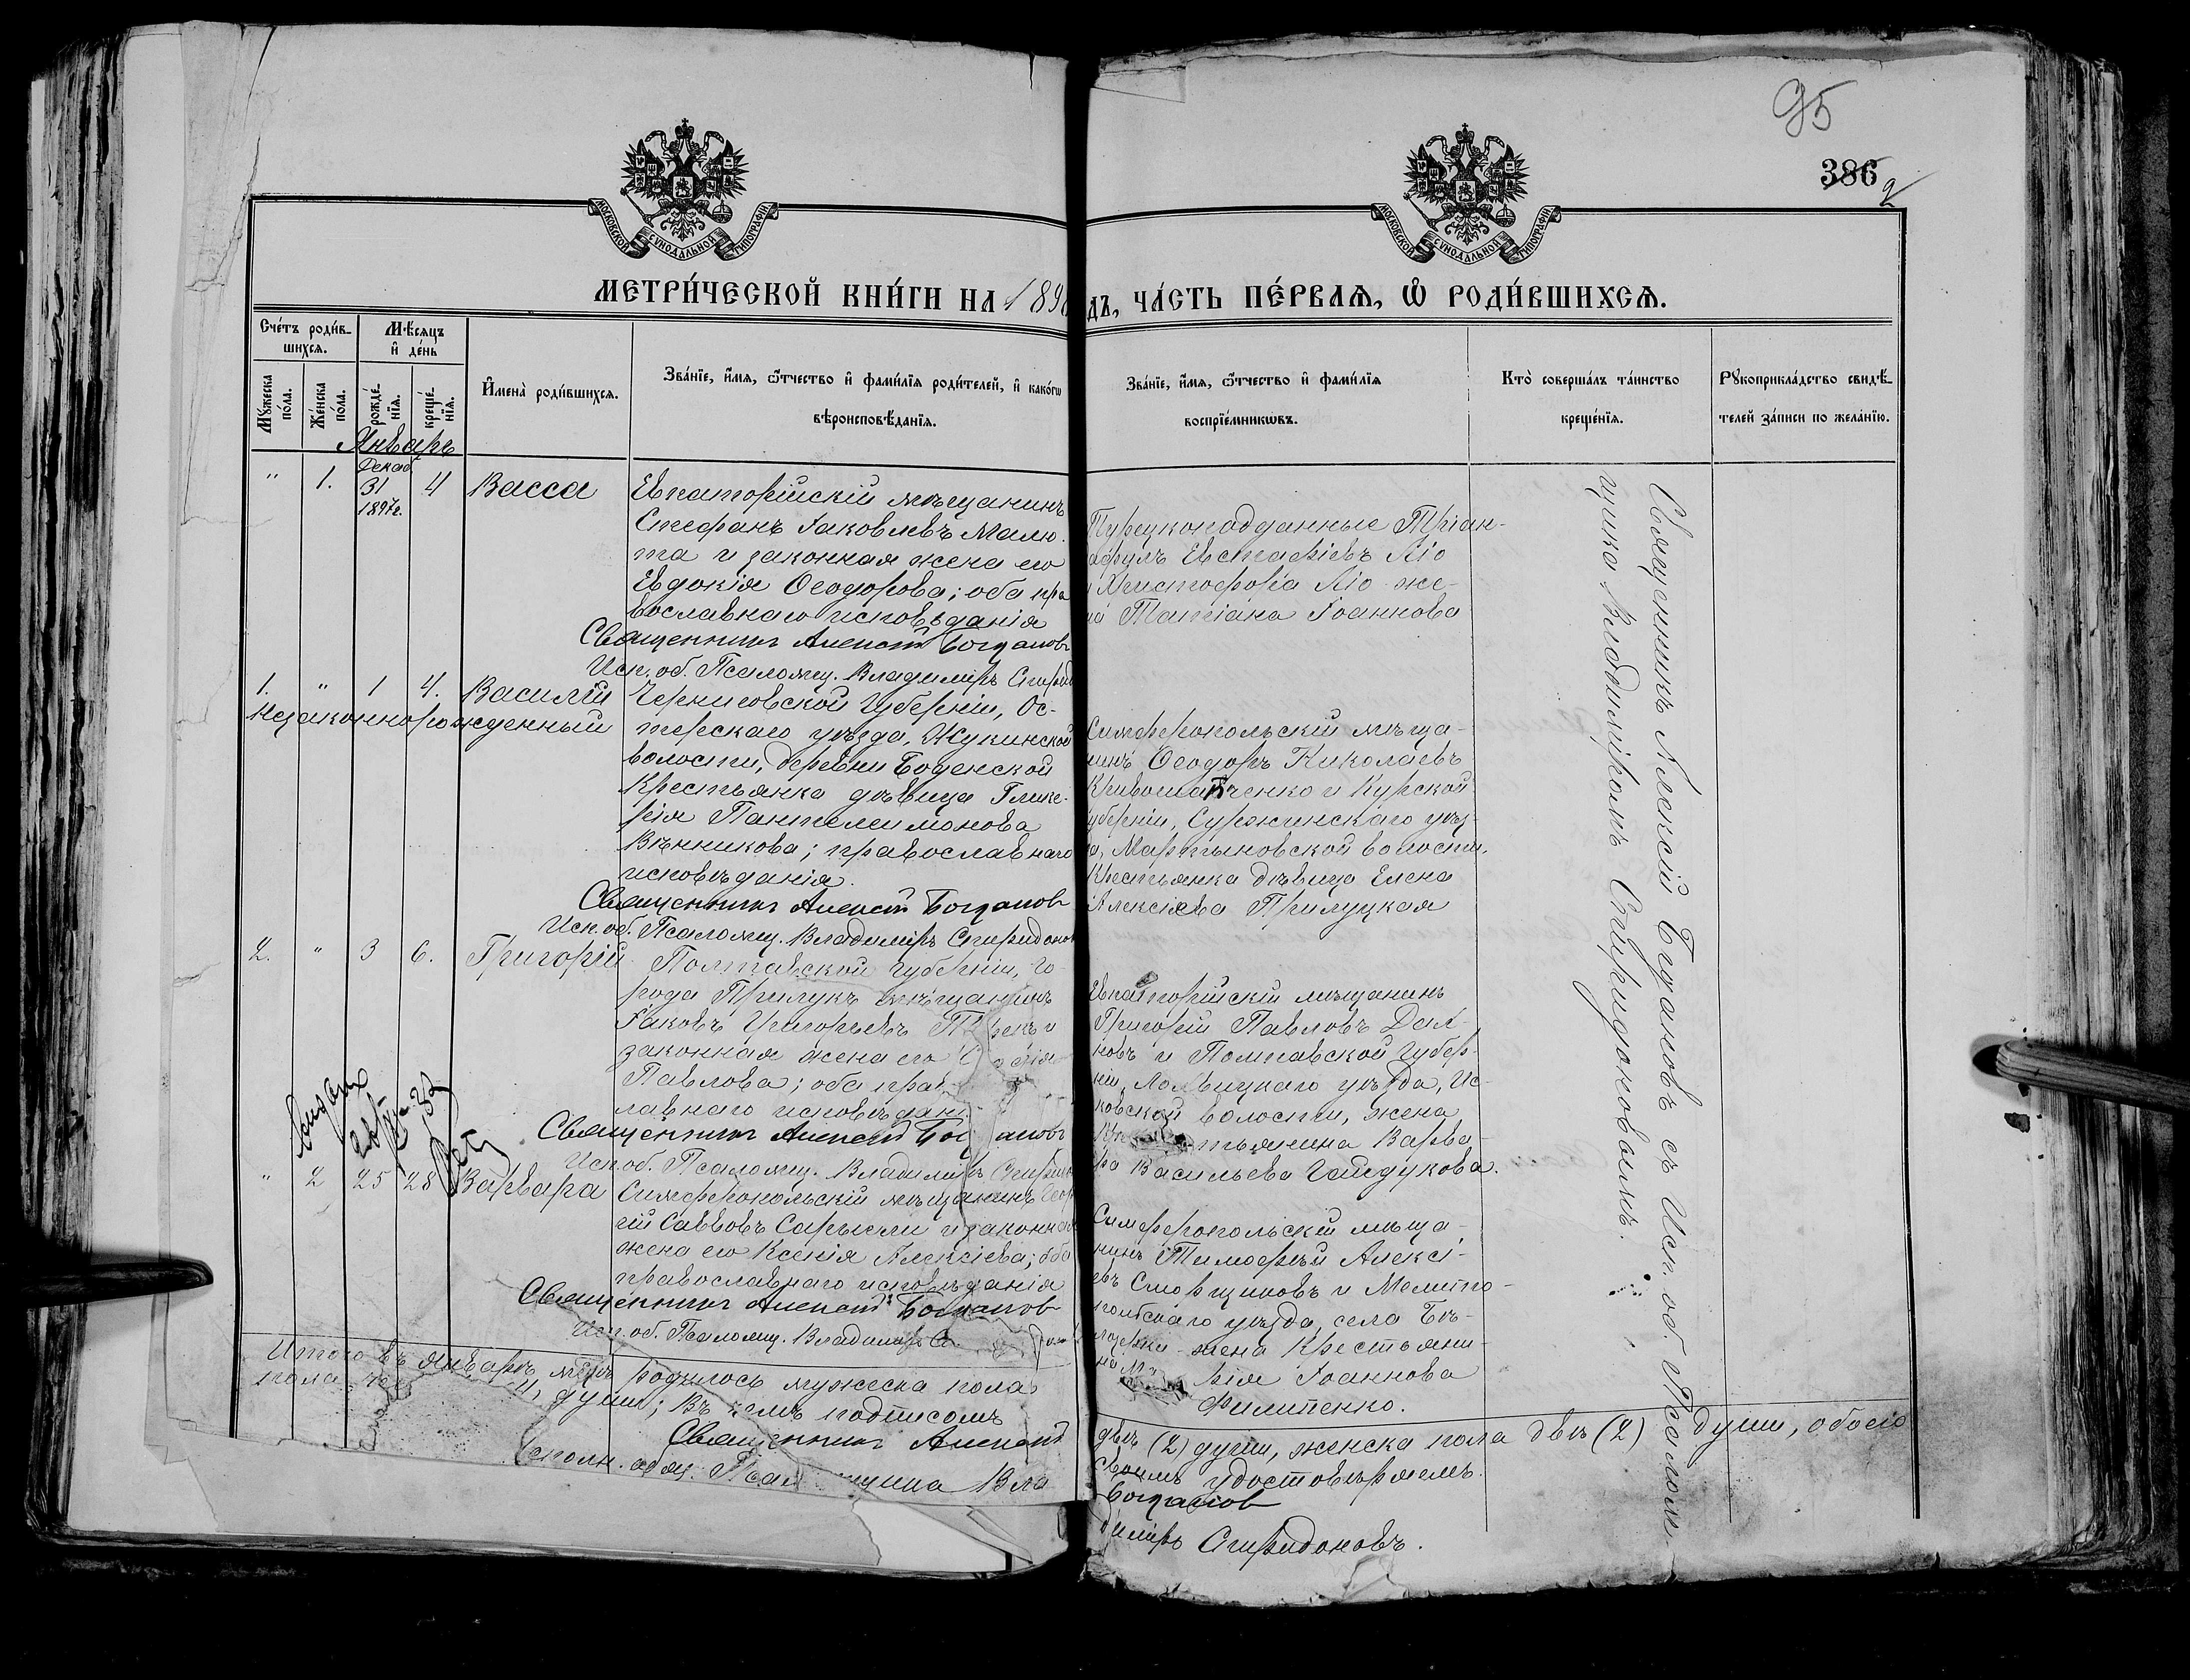 95
386
2
МОСКОВСКОЙ СѴНОДАЛЬНОЙ ТИПОГРАФІИ
МОСКОВСКОЙ СѴНОДАЛЬНОЙ ТИПОГРАФІИ
МЕТРИ́ЧЕСКОЙ КНИ́ГИ НА 1898
ДЪ, ЧА́СТЬ ПЕ́РВАѦ, Ѽ РОДИ́ВШИХСѦ.
Сче́тъ роди́в-
шихсѧ.
Мѣ́сѧцъ
и҆ де́нь
Мꙋ́жеска
по́ла.
Же́нска
по́ла.
рожде́-
нїѧ.
креще́-
нїѧ.
И҆мена̀ роди́вшихсѧ.
Зва́нїе, и҆́мѧ, ѻ҆́тчество и҆ фами́лїѧ роди́телей, и҆ како́гѡ
вѣроисповѣ́данїѧ.
Зва́нїе, и҆́мѧ, ѻ҆́тчество и҆ фами́лїѧ
воспрїе́мникѡвъ.
Кто̀ соверша́лъ та́инство
креще́нїѧ.
Рꙋкоприкла́дство свидѣ́-
телей за́писи по жела́нїю.
Январь
" 1. Декаб. 31 1897г. 4 Васса
Евпаторійскій мѣщанинъ
Стефанъ Іаковлевъ Малю-
та и законная жена его
Евдокія Ѳеодорова; оба пра
вославнаго исповѣданія
Священникъ Алексій Богдановъ
Исп. об. Псаломщ. Владиміръ Спирид
Турецкоподданные Тріан-
афулъ Евстафіевъ Ліо
и Христофорія Ліо же-
на Татіана Іоаннова
1. " 1 4. Василій
незаконнорожденный
Черниговской Губерніи, Ос-
терскаго уѣзда, Жукинской
волости, деревни Боденской
Крестьянка дѣвица Глике-
рія Пантелеимонова
Вѣнникова; православнаго
исповѣданія.
Священникъ Алексій Богдановъ
Исп. об. Псаломщ. Владиміръ Спиридонов
Симферопольскій мѣща-
инъ Ѳеодоръ Николаевъ
Кривошапченко и Курской
уберніи, Суржинскаго уѣз-
а, Мартыновской волости,
Крестьянка дѣвица Елена
Алексіева Прилуцкая
2. " 3 6. Григорій
Полтавской губерніи, го-
рода Прилукъ мѣщанинъ
Іаковъ Григорьевъ
законная жена его
Павлова; оба прав
лавнаго исповѣдані
Священникъ Алексій Богдановъ
Исп. об. Псаломщ. Владиміръ Спиридо
Евпаторійскій мѣщанинъ
Григорій Павловъ Дал-
ковъ и Полтавской губер-
ніи, Лохвицкаго уѣзда, Ис-
ковской волости, жена
Крестьянина Варва-
ра Васильева Гайдукова.
" 2 25 28 Варвара
Симферопольскій мѣщанинъ Геор
гій Саввовъ Сарысели и законная
жена его Ксенія Алексіева; оба
православнаго исповѣданія
Священникъ Алексій Богдановъ
Исп. об. Псаломщ. Владиміръ
Симферопольскій мѣща-
нинъ Тимофей Алексі-
евъ Сторщиковъ и Мелито-
польскаго уѣзда, села Бѣ-
лозерки жена Крестьяни-
на рія Іоаннова
Филипенко.
Священникъ Алексій Богдановъ съ Исп. об. Псалом-
щика Владиміромъ Спиридоновымъ.
Итого въ январѣ родилось мужеска пола
двѣ (2) души, женска пола двѣ (2) души, обоего
пола 4 души; въ чемъ подписомъ
своимъ удостовѣряемъ.
Священникъ Алексій
Богдановъ
Исполн. об. Псаломщика Вла
диміръ Спиридоновъ.